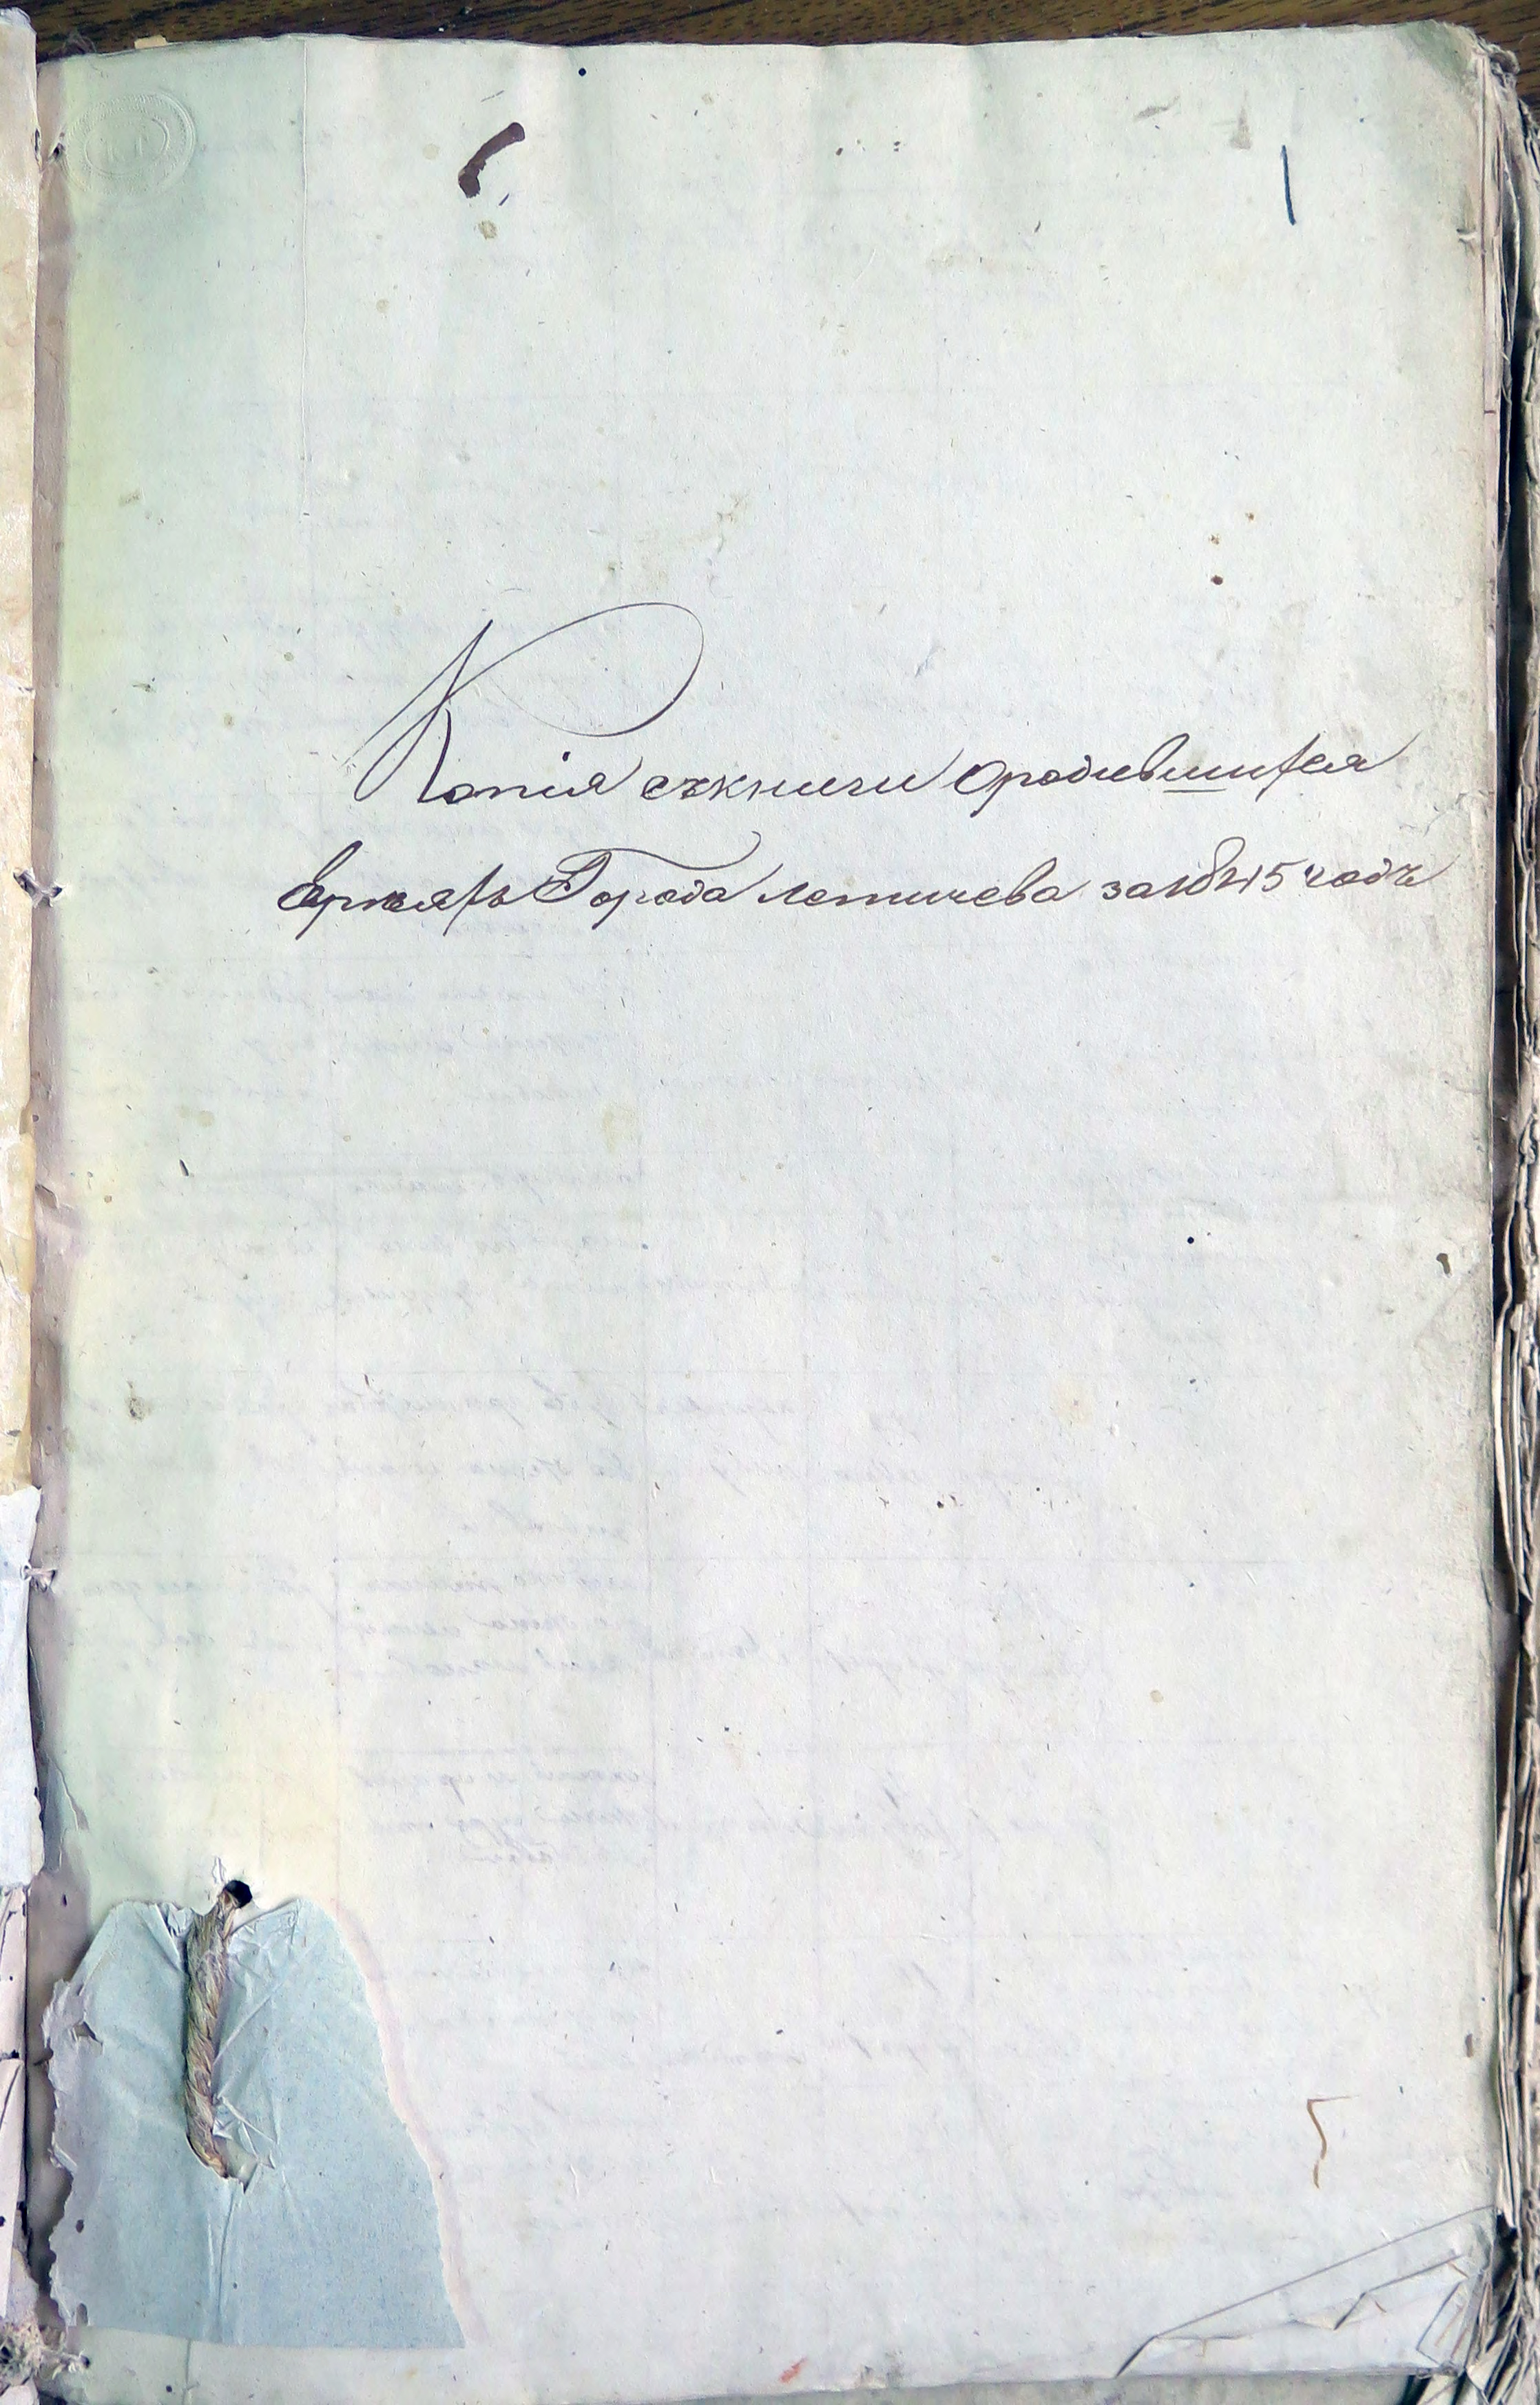 Копія съ книги о родившихся
Евреяхъ Города Летичева за 1845 годъ
1